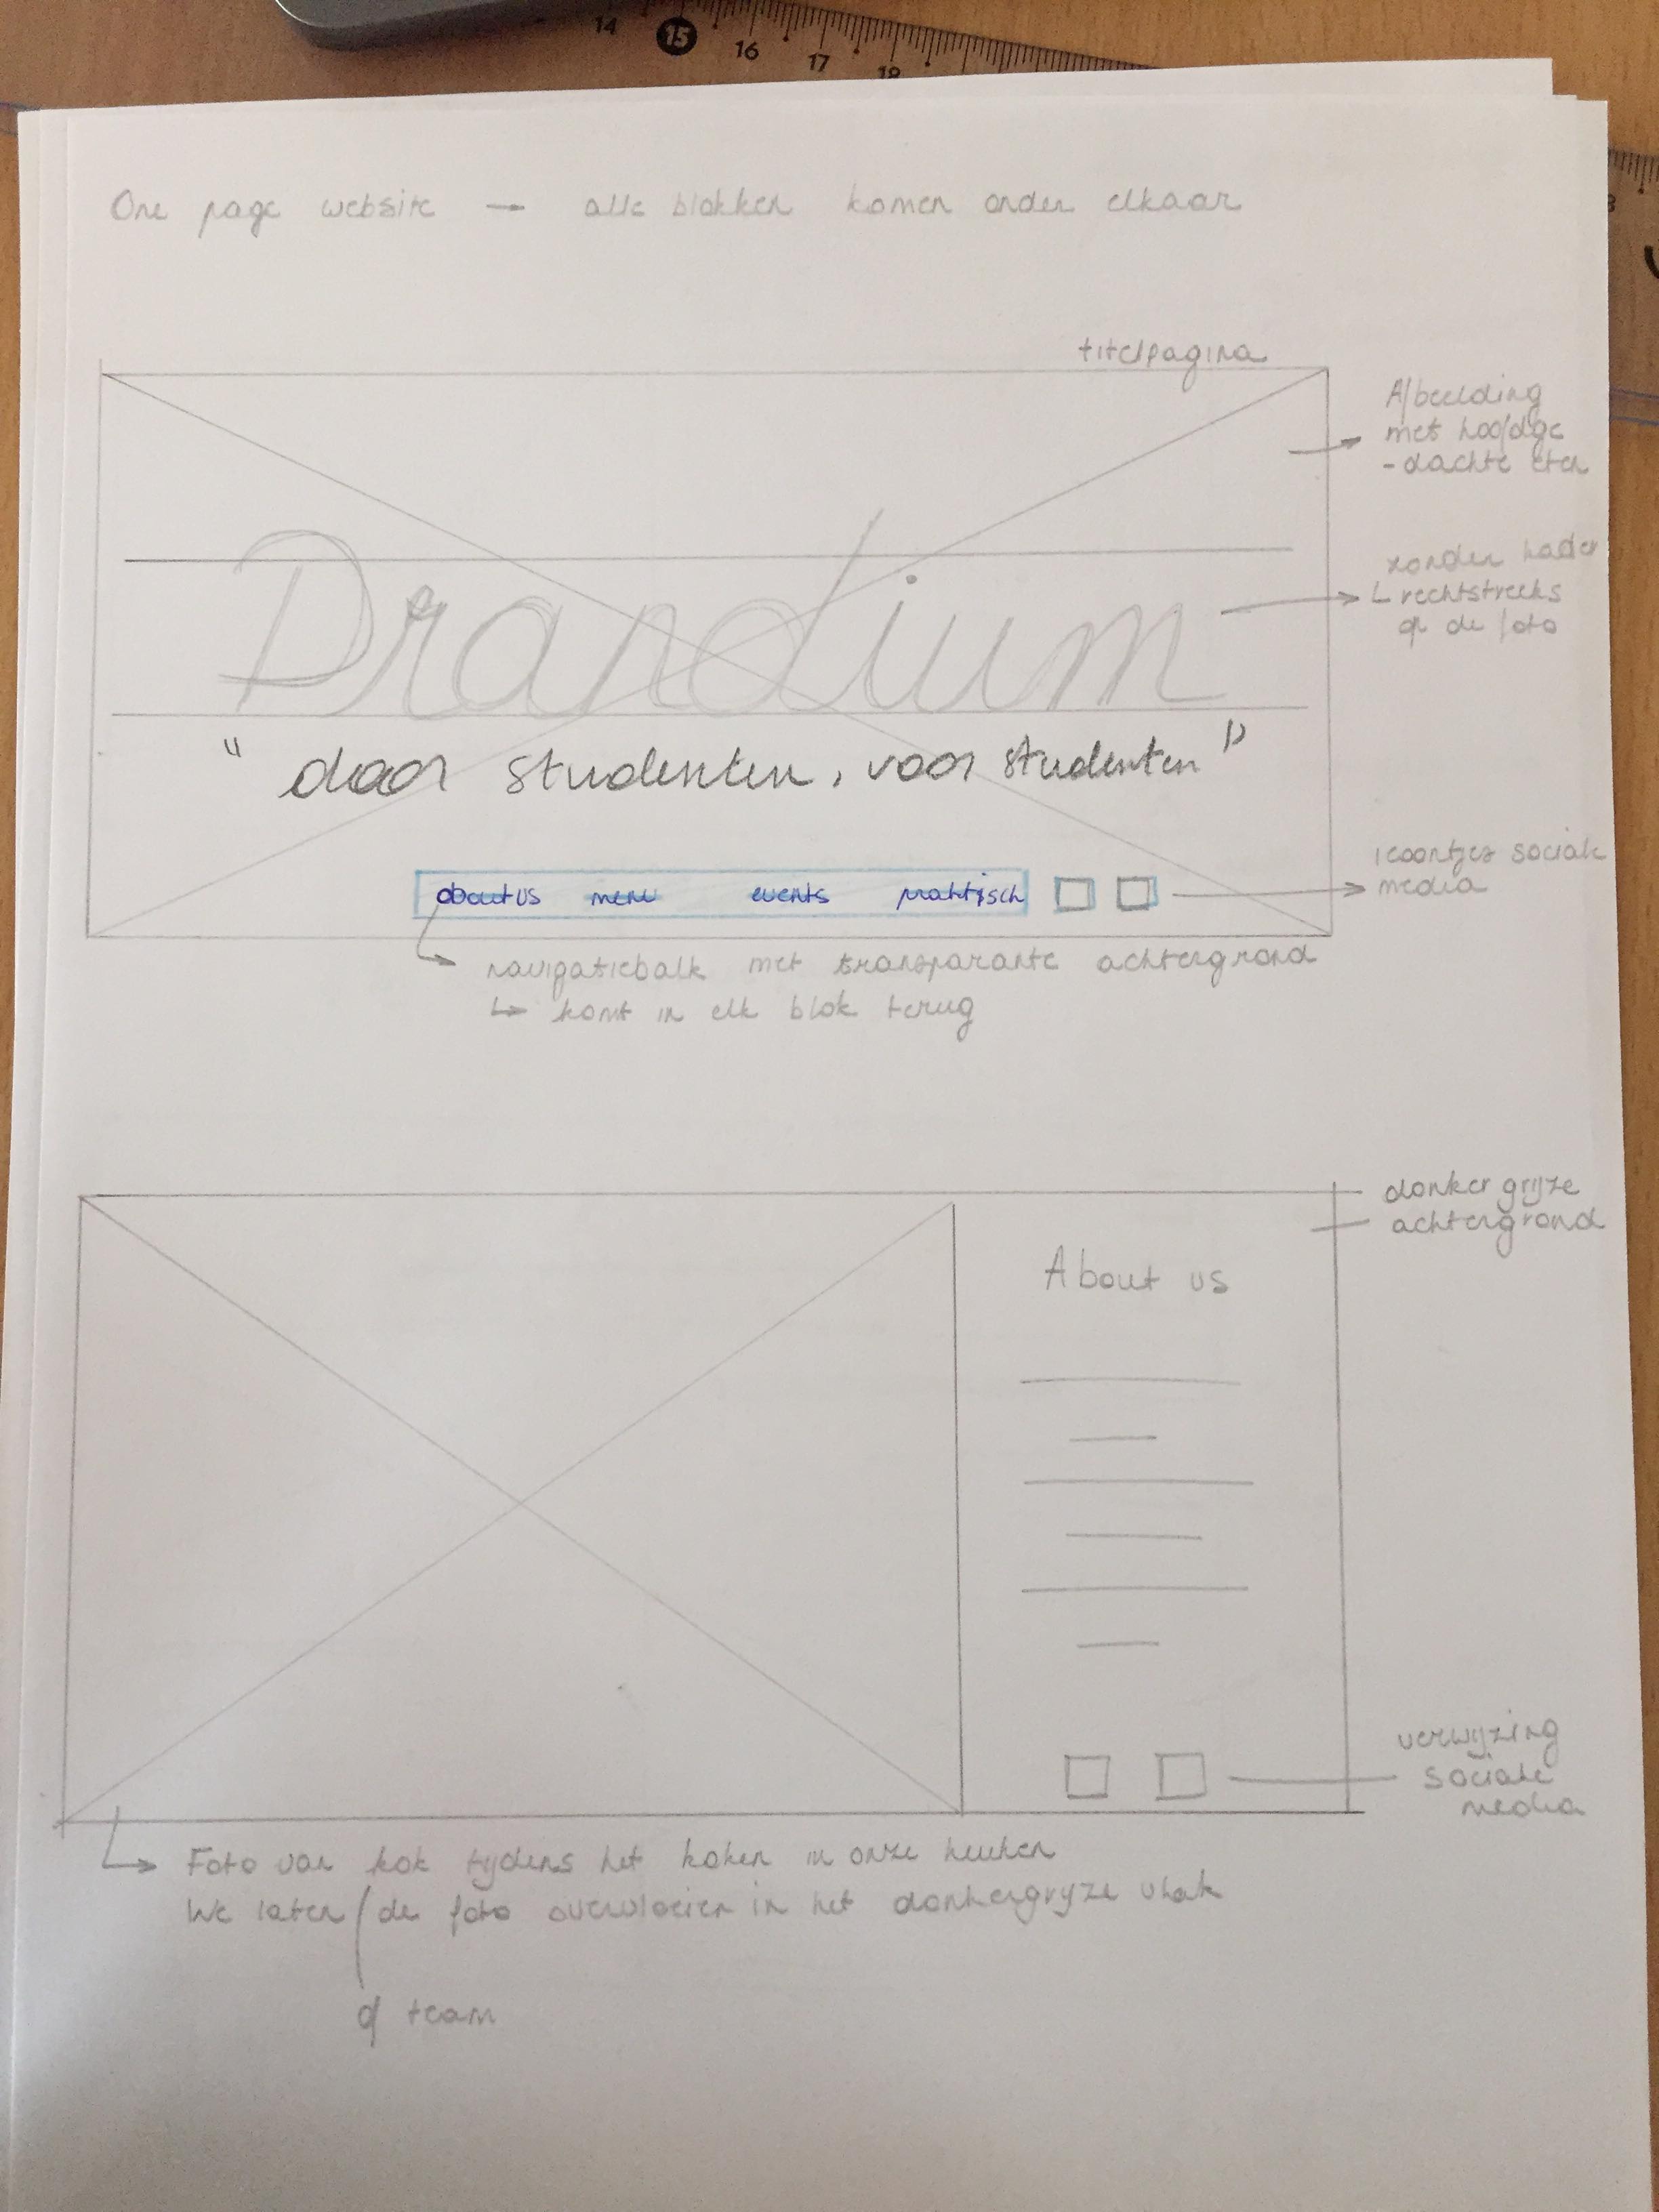 14 15 16 17 18
One page website — alle blokken komen onder elkaar
titelpagina
Afbeelding
met hoofdge
-dachte eten
Prandium
zonder kader
↳ rechtstreeks
op de foto
" door studenten, voor studenten "
icoontjes sociale
media
about us menu events praktisch
navigatiebalk met transparante achtergrond
↳ komt in elk blok terug
donker grijze
achtergrond
About us
verwijzing
sociale
media
Foto van kok tijdens het koken in onze keuken
We laten de foto overvloeien in het donkergrijze vlak
of team